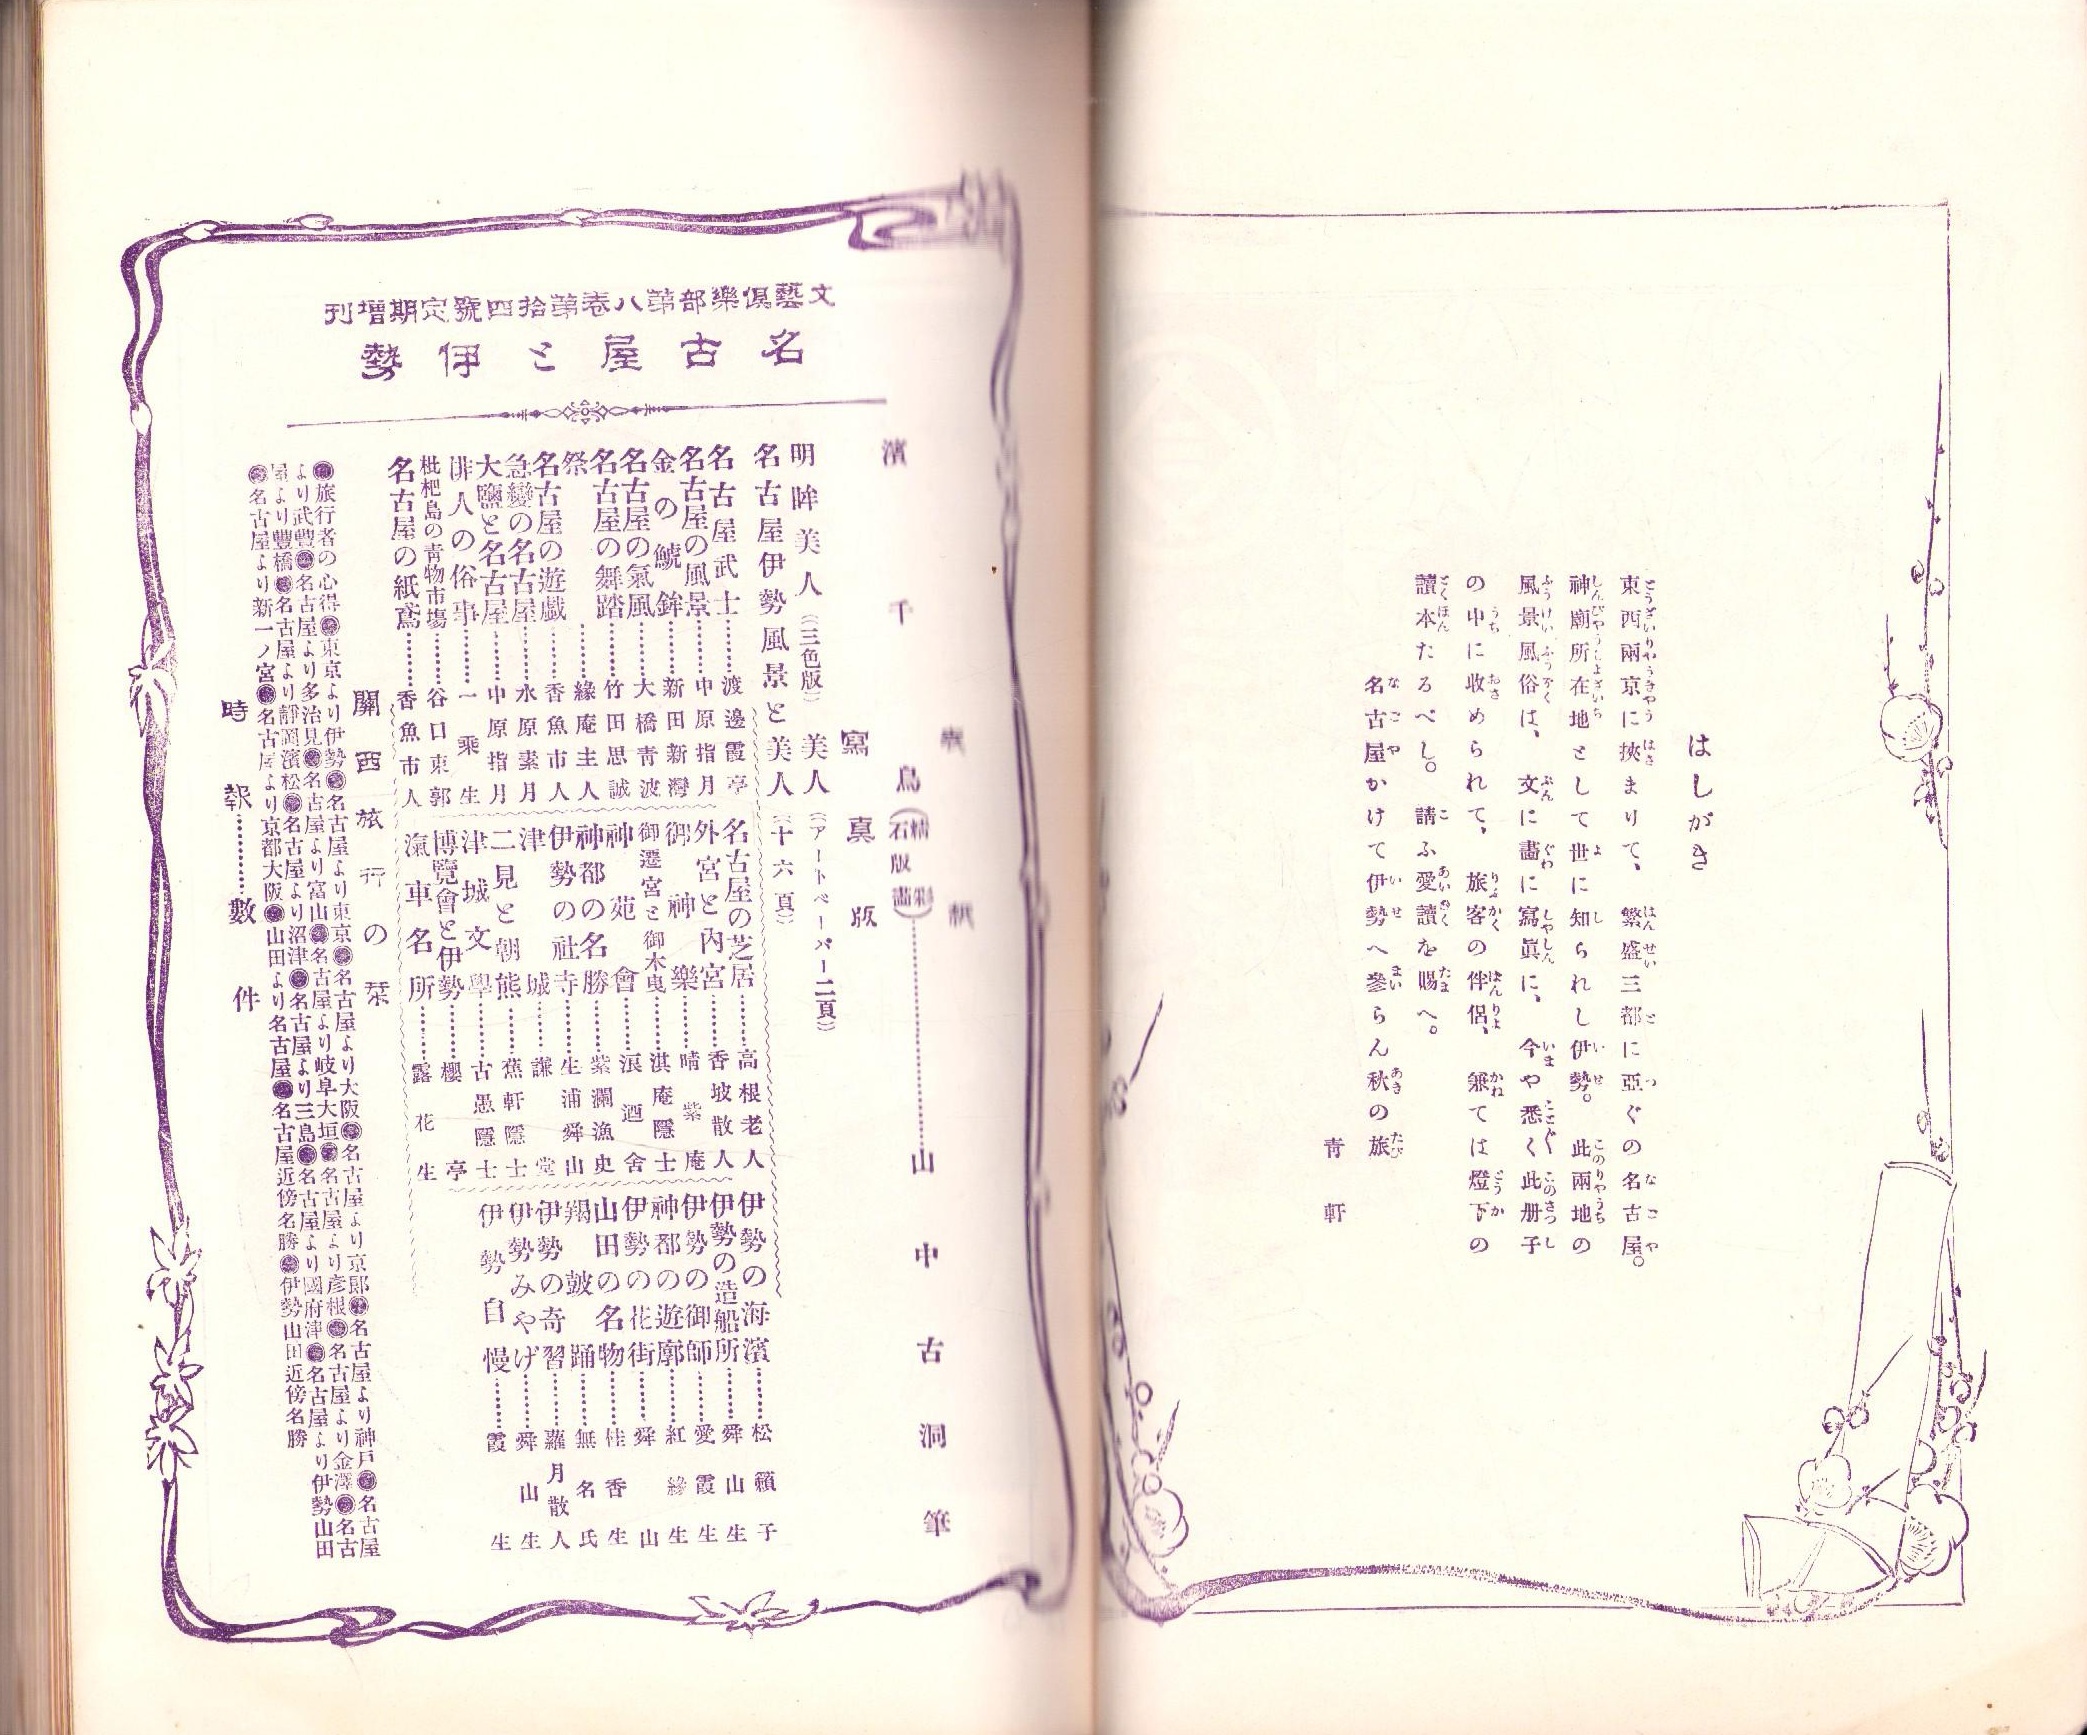 はしがき
東西兩京に挾まりて、繁盛三都に亞ぐの名古屋。
神廟所在地として世に知られし伊勢。此兩地の
風景風俗は、文に畵に寫眞に、今や悉く此册子
の中に收められて、旅客の伴侶、兼ては燈下の
讀本たるべし。請ふ愛讀を賜へ。
名古屋かけて伊勢へ參らん秋の旅
青軒
文藝倶樂部第八卷第拾四號定期增刊
名古屋と伊勢
表紙
濱千鳥(精彩石版畵)………山中古洞筆
寫真版
明眸美人(三色版)美人(アートペーパー二頁)
名古屋伊勢風景と美人(十六頁)
名古屋武士………渡邊霞亭
名古屋の風景………中原指月
金の鯱鉾………新田新灣
名古屋の氣風………大橋青波
名古屋の舞踏………竹田思誠
祭………緣庵主人
名古屋の遊戯………香魚市人
急變の名古屋………水原素月
大鹽と名古屋………中原指月
俳人の俗事………一乘生
枇杷島の青物市塲………谷口東郭
名古屋の紙鳶………香魚市人
名古屋の芝居………高根老人
外宮と內宮………香坡散人
御神樂………晴紫庵
御遷宮と御木曳………淇庵隱士
神苑會………浪酒舍
神都の名勝………紫瀾漁史
伊勢の社寺………生浦舜山
津城………謙堂
二見と朝熊………蕉軒隱士
津城文學………古愚隱士
博覽會と伊勢………櫻亭
滊車名所………露花生
伊勢の海濱………松籟子
伊勢の造船所………舜山生
伊勢の御師………愛霞生
神都の遊廓………紅綠生
伊勢の花街………舜山
山田の名物………佳香生
羯皷踊………無名氏
伊勢の奇習………蘿月散人
伊勢みやげ………舜山生
伊勢自慢………霞生
關西旅行の栞
●旅行者の心得●東京より伊勢●名古屋より東京●名古屋より大阪●名古屋より京都●名古屋より神戸●名古屋
より武豐●名古屋より多治見●名古屋より富山●名古屋より岐阜大垣●名古屋より彥根●名古屋より金澤●名古
屋より豐橋●名古屋より靜岡濱松●名古屋より沼津●名古屋より三島●名古屋より國府津●名古屋より伊勢山田
●名古屋より新一ノ宮●名古屋より京都大阪●山田より名古屋●名古屋近傍名勝●伊勢山田近傍名勝
時報………數件